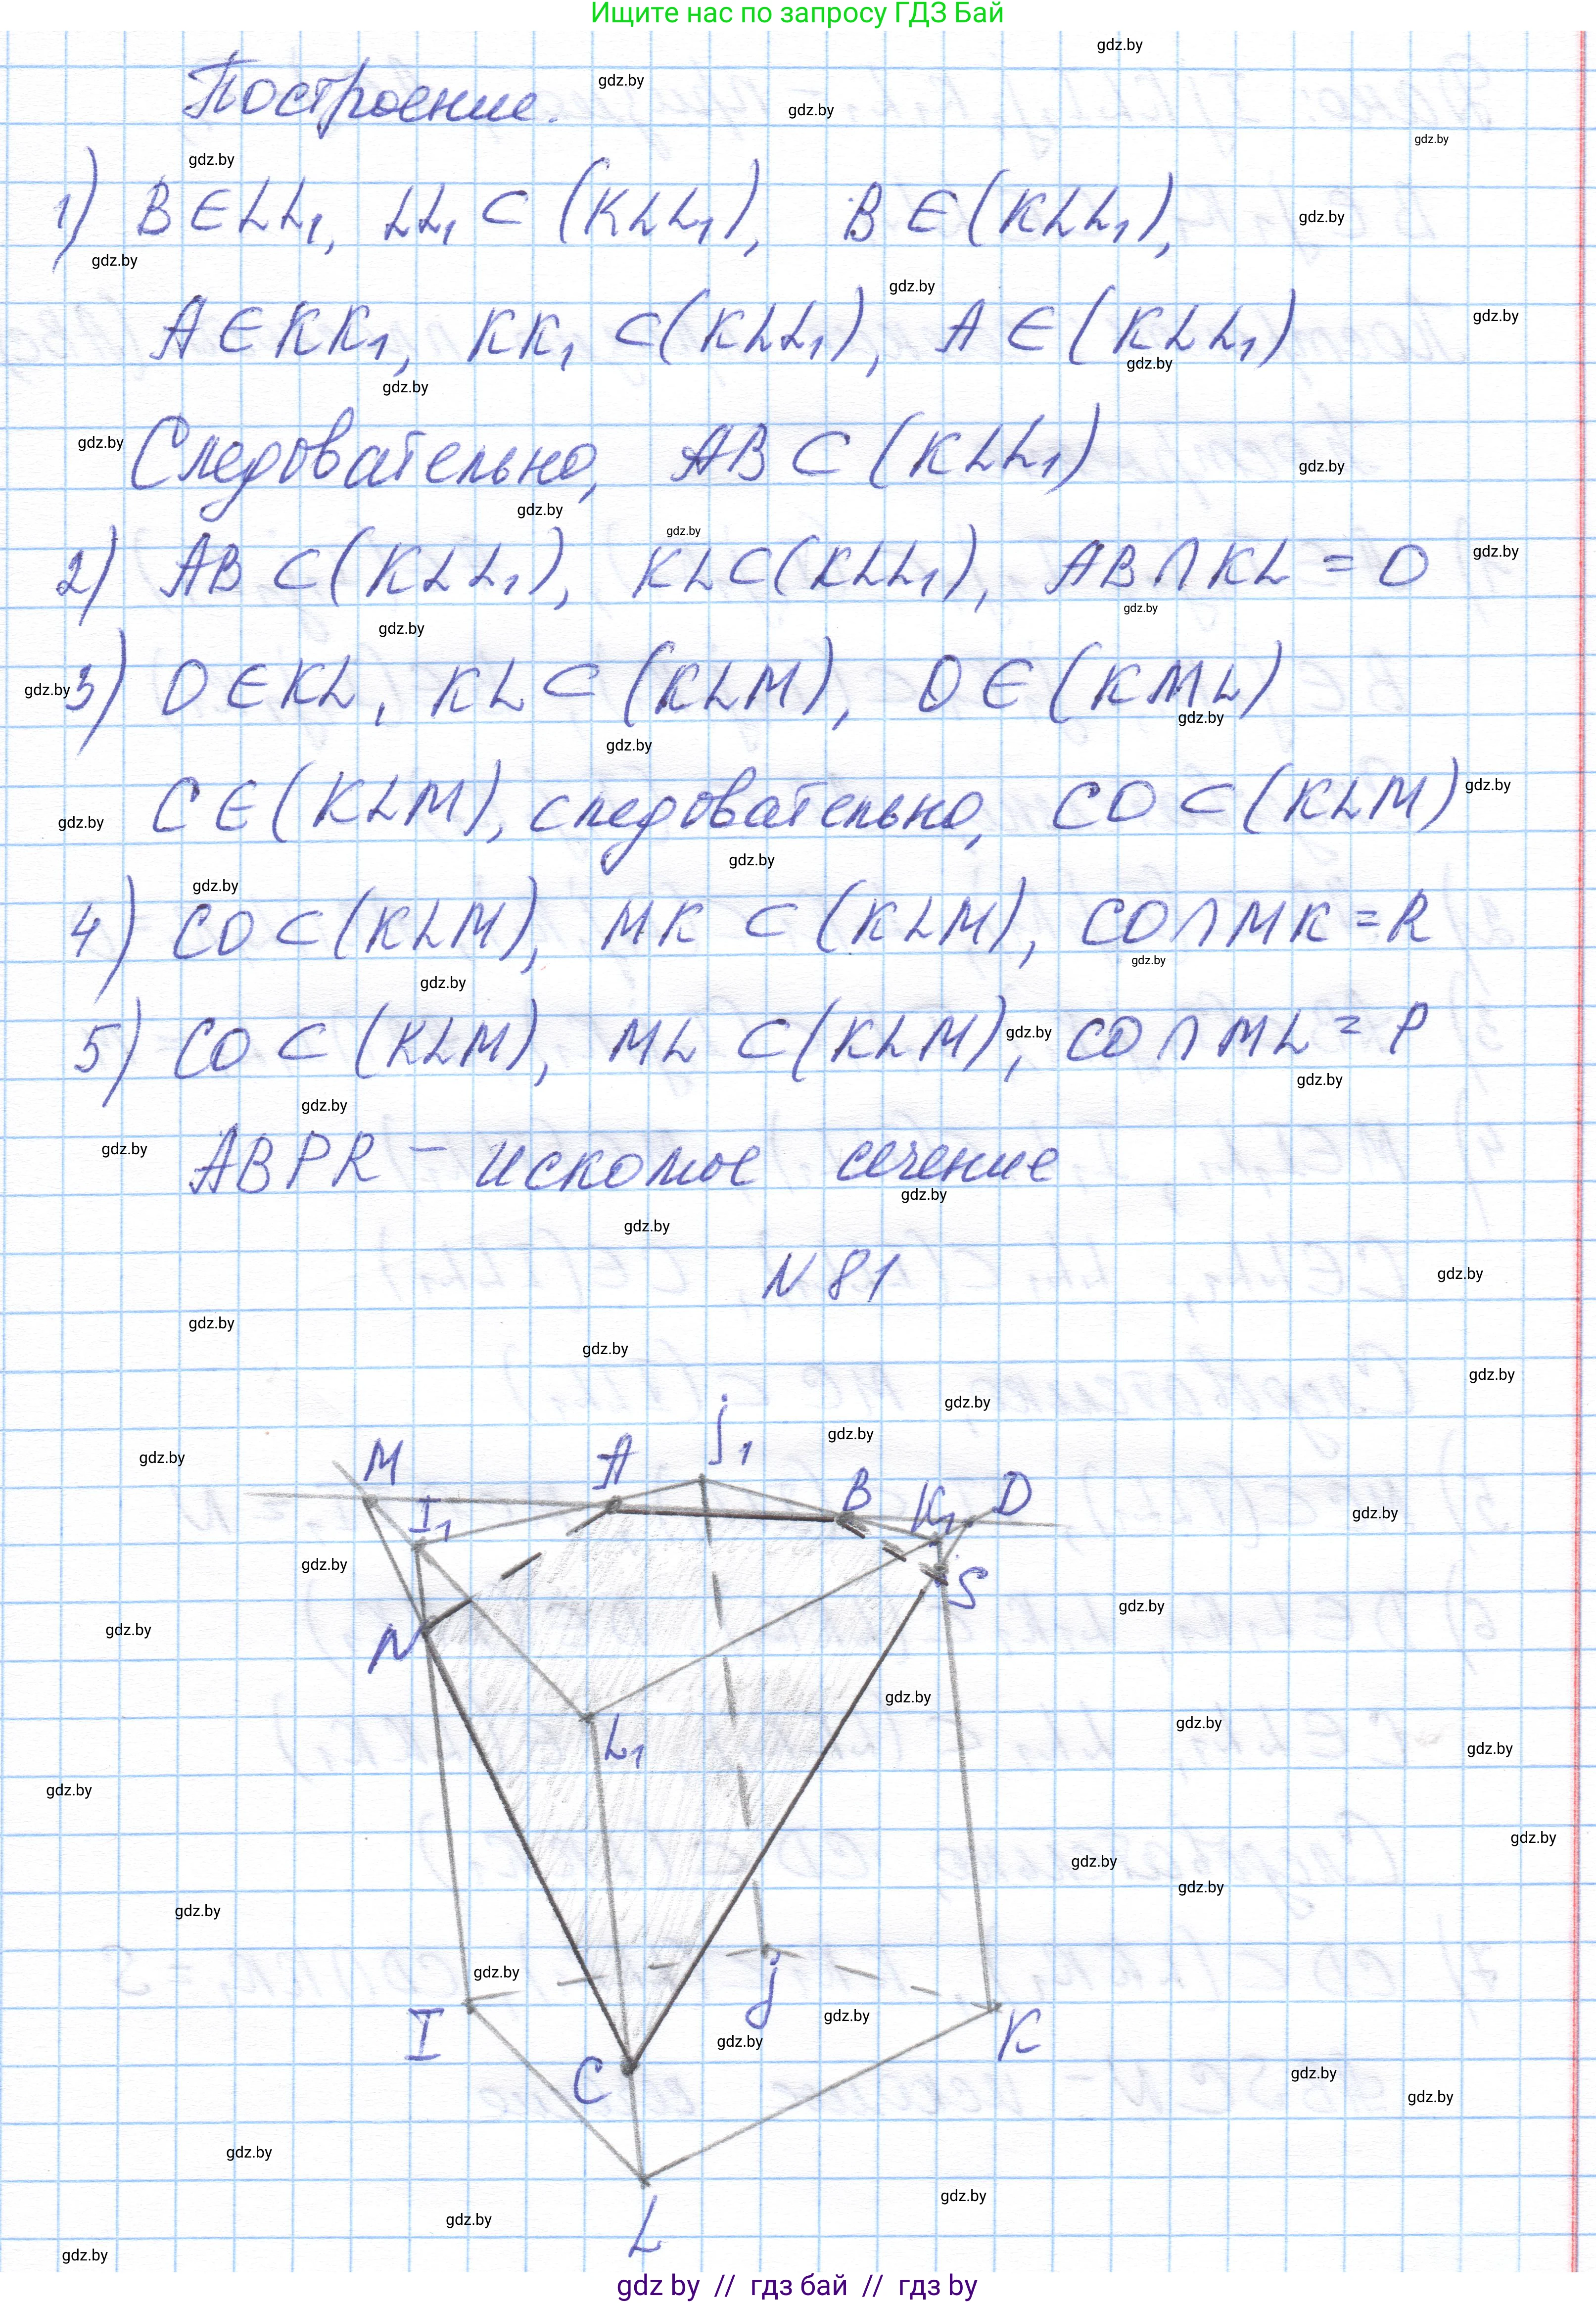 Ищите нас по запросу ГДЗ Бай
Построение.
1) B ∈ LL₁, LL₁ ⊂ (KLL₁), B ∈ (KLL₁),
A ∈ KK₁, KK₁ ⊂ (KLL₁), A ∈ (KLL₁)
Следовательно, AB ⊂ (KLL₁)
2) AB ⊂ (KLL₁), KL ⊂ (KLL₁), AB ∩ KL = O
3) O ∈ KL, KL ⊂ (KLM), O ∈ (KML)
C ∈ (KLM), следовательно, CO ⊂ (KLM)
4) CO ⊂ (KLM), MK ⊂ (KLM), CO ∩ MK = R
5) CO ⊂ (KLM), ML ⊂ (KLM), CO ∩ ML = P
ABPR – искомое сечение
N 81
M A J₁ B K₁ D
I₁
S
N
L₁
I J K
C
L
gdz by // гдз бай // гдз by